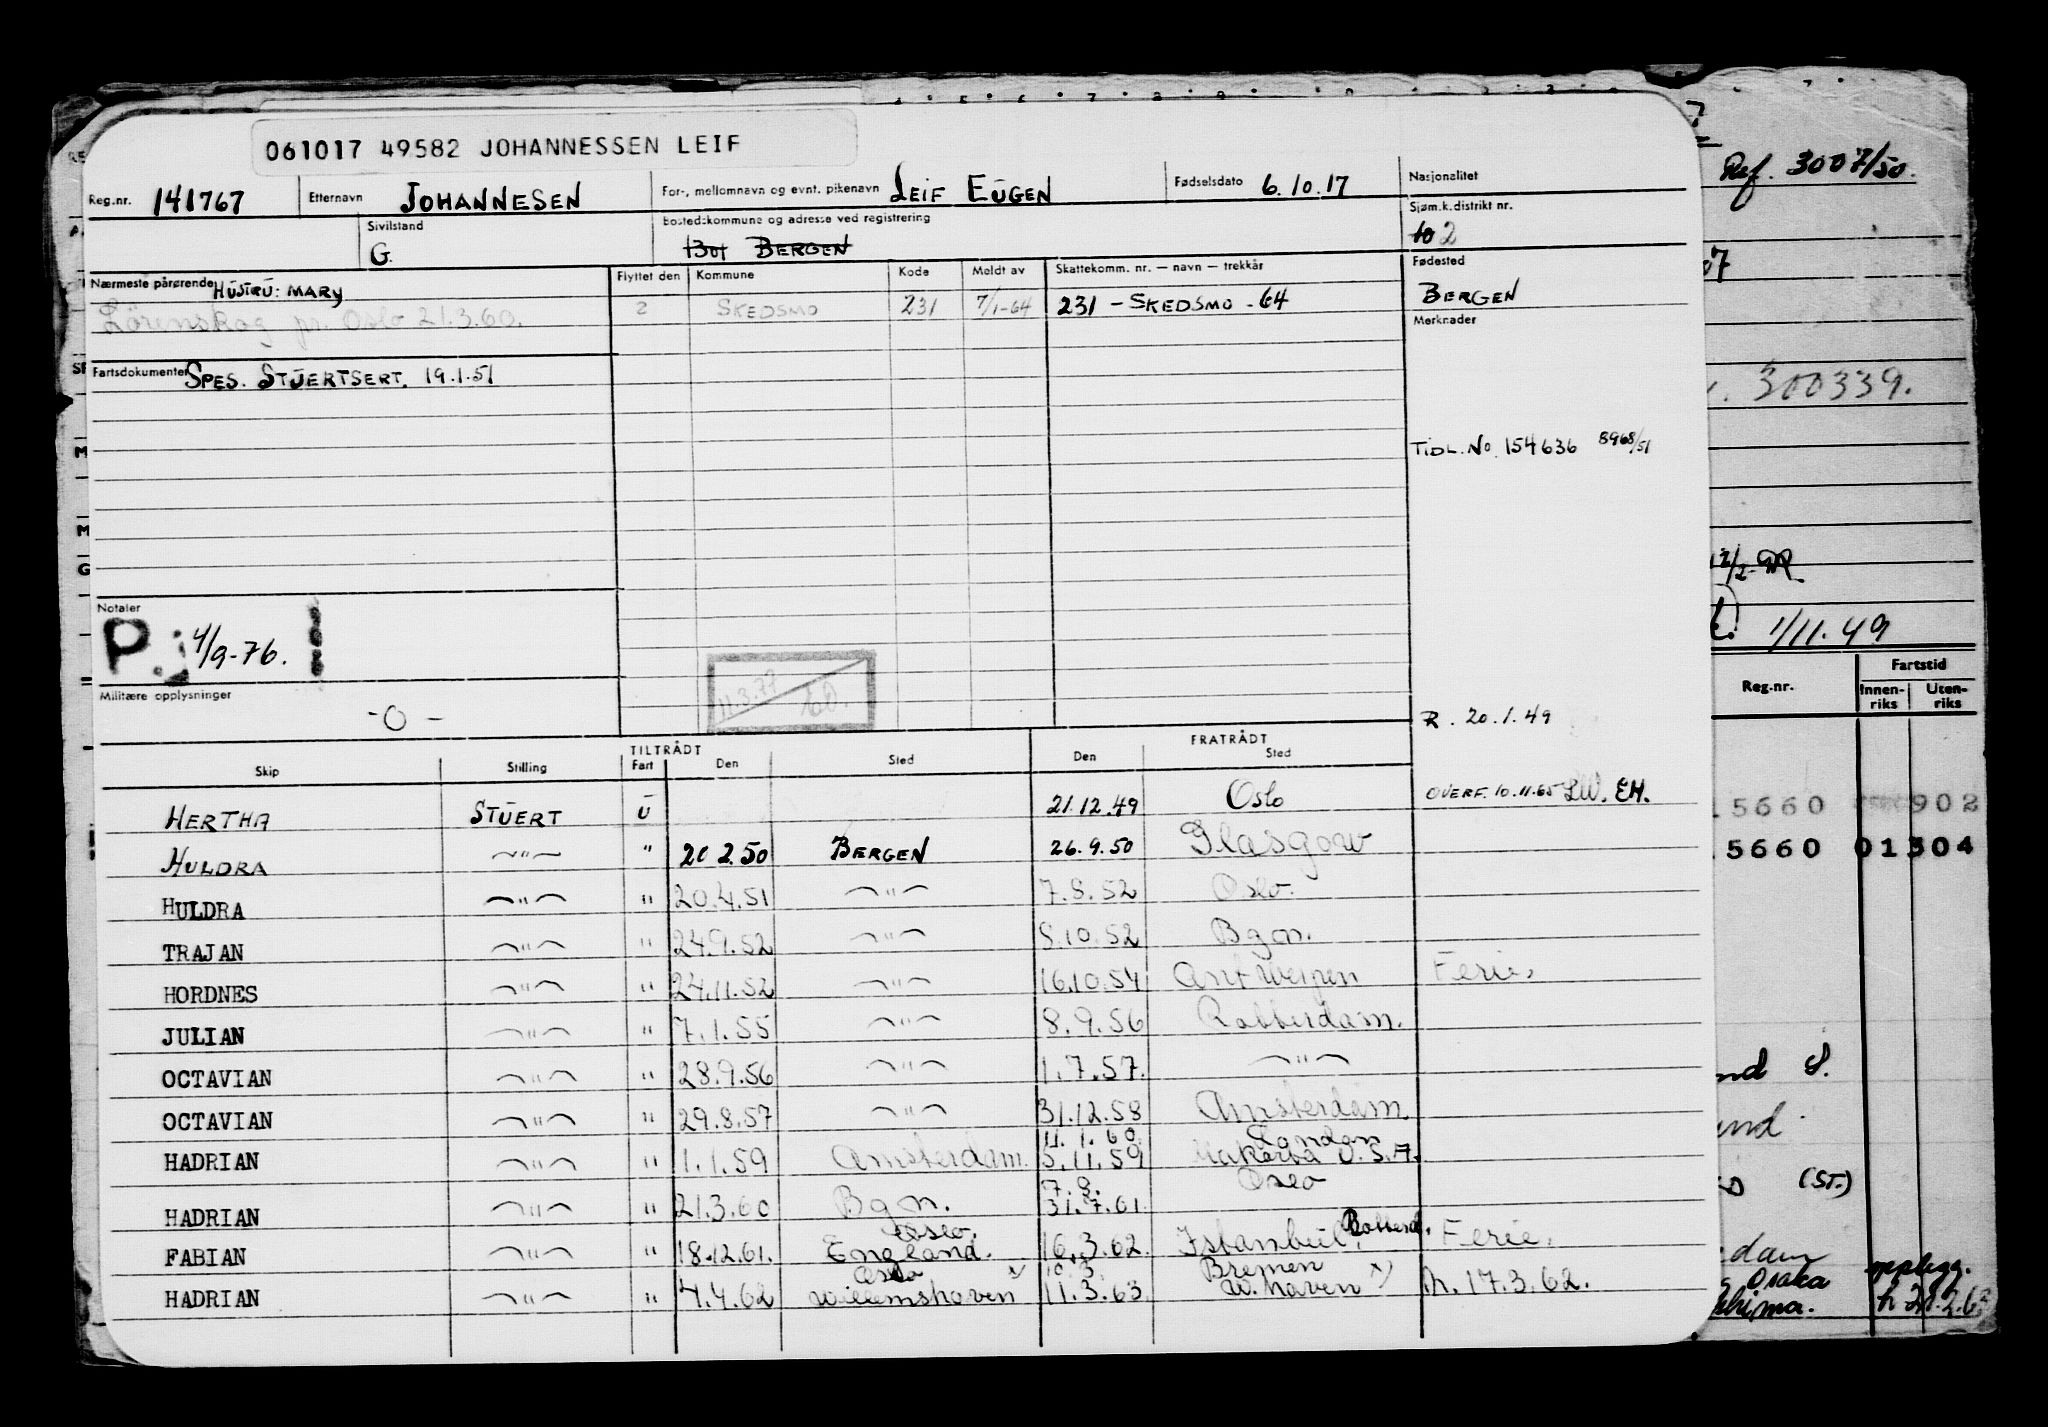 061017 49582 JOHANNESSEN LEIF
Reg.nr. 141767 Etternavn JOHANNESEN For-, mellomnavn og evnt. pikenavn LEIF EUGEN Fødselsdato 6.10.17 Nasjonalitet
Sivilstand G. Bostedskommune og adresse ved registrering 1301 BERGEN Sjøm.k.distrikt nr. 10 2
Nærmeste pårørende HUSTRU: MARY Flyttet den Kommune Kode Meldt av Skattekomm. nr. — navn — trekkår Fødested
Lörenskog pr. Oslo 21.3.60. 2 SKEDSMO 231 7/1-64 231 - SKEDSMO - 64 BERGEN
Merknader
Fartsdokumenter SPES. STUERTSERT. 19.1.51
TIDL. NO. 154636 8968/51
Notaler
P. 4/9-76.
Militære opplysninger
-0-
11.3.77
R. 20.1.49
TILTRÅDT FRATRÅDT
Skip Stilling Fart Den Sted Den Sted
HERTHA STUERT U 21.12.49 Oslo OVERF. 10.11.65 LW. EH.
HULDRA —"— " 20 2.50 BERGEN 26.9.50 Glasgow
HULDRA —"— " 20.4.51 —"— 7.8.52 Oslo.
TRAJAN —"— " 24.9.52 —"— 8.10.52 Bgn.
HORDNES —"— " 24.11.52 —"— 16.10.54 Antwerpen Ferie.
JULIAN —"— " 7.1.55 —"— 8.9.56 Rotterdam.
OCTAVIAN —"— " 28.9.56 —"— 1.7.57. —"—
OCTAVIAN —"— " 29.8.57 —"— 31.12.58 Amsterdam
11.1.60. London
HADRIAN —"— " 1.1.59 Amsterdam. 5.11.59 U.S.A.
7.8. Oslo
HADRIAN —"— " 21.3.60 Bgn. 31.7.61
Oslo. Rotterd.
FABIAN —"— " 18.12.61. England. 16.3.62. Istambul, Ferie.
Oslo 10.3. Bremen
HADRIAN —"— " 4.4.62 Willemshaven x) 11.3.63 W.haven x) h. 17.3.62.
Ref. 3007/50.
300339.
12/2-
1/11.49
Reg.nr. Fartstid
Innen-riks Uten-riks
5660 902
5660 01304
(ST.)
dam
Osaka opplegg.